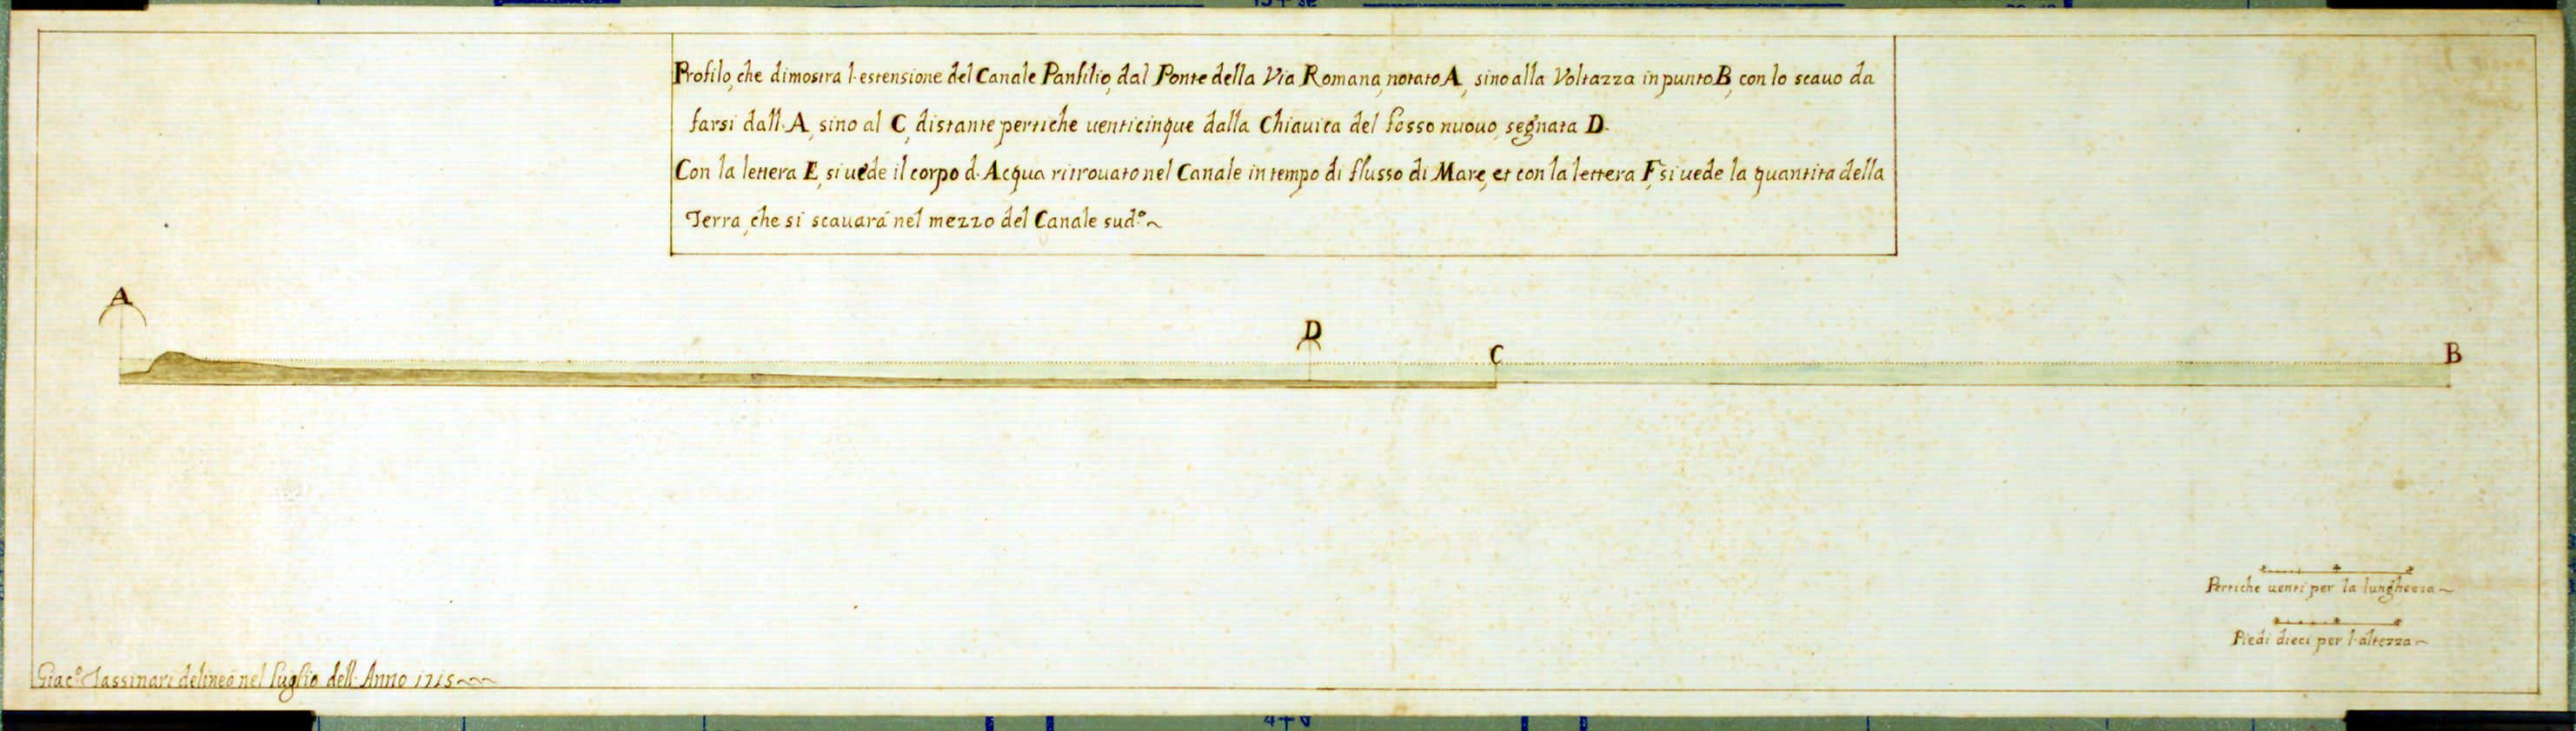 Profilo, che dimostra l'estensione del Canale Panfilio, dal Ponte della Via Romana, notato A, sino alla Voltazza in punto B, con lo scauo da
farsi dall' A, sino al C, distante pertiche uenticinque dalla Chiauica del fosso nuouo, segnata D.
Con la lettera E, si uede il corpo d'Acqua ritrouato nel Canale in tempo di flusso di Mare, et con la lettera F, si uede la quantita della
Terra, che si scauará nel mezzo del Canale sud.º~
A
D
C
B
Pertiche uenti per la lunghezza~
Piedi dieci per l'altezza~
Giac.º Tassinari delineó nel Luglio dell' Anno 1715~~~